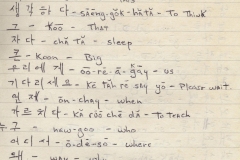 생각하다 - sāēng-gŏk-hă tă - To Think
그 - Koo - That
자다 - chă tă - sleep
큰 - Koon - Big
우리에게 - oo-rē-ā-gāy - us
기다리세요 - Kē tăh rē sāy yō - Please wait
언제 - ōn-chay - when
가르치다 - kă rŭŏ chē dă - To teach
누구 - new-goo - who
어디서 - ŏ-dē-sŏ - where
왜 - way - why